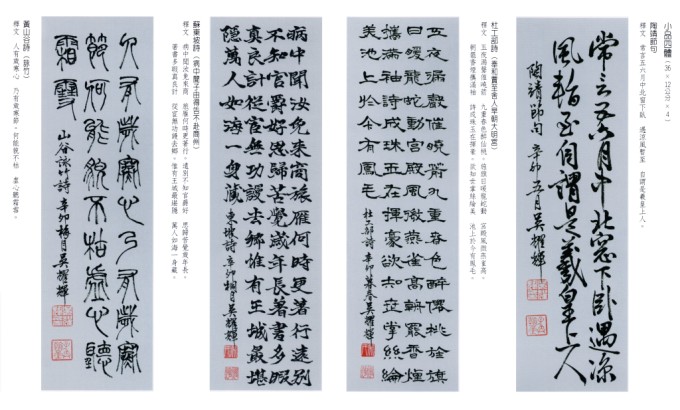 小品四體（36×122公分×4）
陶靖節句
釋文　常言五六月中北窗下臥　遇涼風暫至　自謂是羲皇上人。
常言五六月中北窓下臥遇涼
風暫至自謂是羲皇上人
陶靖節句　辛卯五月吳耀輝
杜工部詩（奉和賈至舍人早朝大明宮）
釋文　五夜漏聲催曉箭　九重春色醉仙桃。旌旗日暖龍蛇動　宮殿風微燕雀高。
朝罷香煙攜滿袖　詩成珠玉在揮毫。欲知世掌絲綸美　池上於今有鳳毛。
五夜漏聲催曉箭九重春色醉僊桃旌旗
日暖龍蛇動宮殿風微燕雀高朝罷香煙
攜滿袖詩成珠玉在揮豪欲知世掌絲綸
美池上於今有鳳毛
杜工部詩　辛卯暮春吳耀輝
蘇東坡詩（病中聞子由得告不赴商州）
釋文　病中聞汝免來商　旅雁何時更著行。遠別不知官爵好　思歸苦覺歲年長。
著書多暇真良計　從宦無功謾去鄉。惟有王城最堪隱　萬人如海一身藏。
病中聞汝免來商旅雁何時更著行遠別
不知官爵好思歸苦覺歲年長著書多暇
真良計從宦無功謾去鄉惟有王城最堪
隱萬人如海一身藏
東坡詩　辛卯桐月吳耀輝
黃山谷詩（詠竹）
釋文　人有歲寒心　乃有歲寒節。何能貌不枯　虛心聽霜雪。
人有歲寒心乃有歲寒
節何能貌不枯虛心聽
霜雪
山谷詠竹詩　辛卯梅月吳耀輝